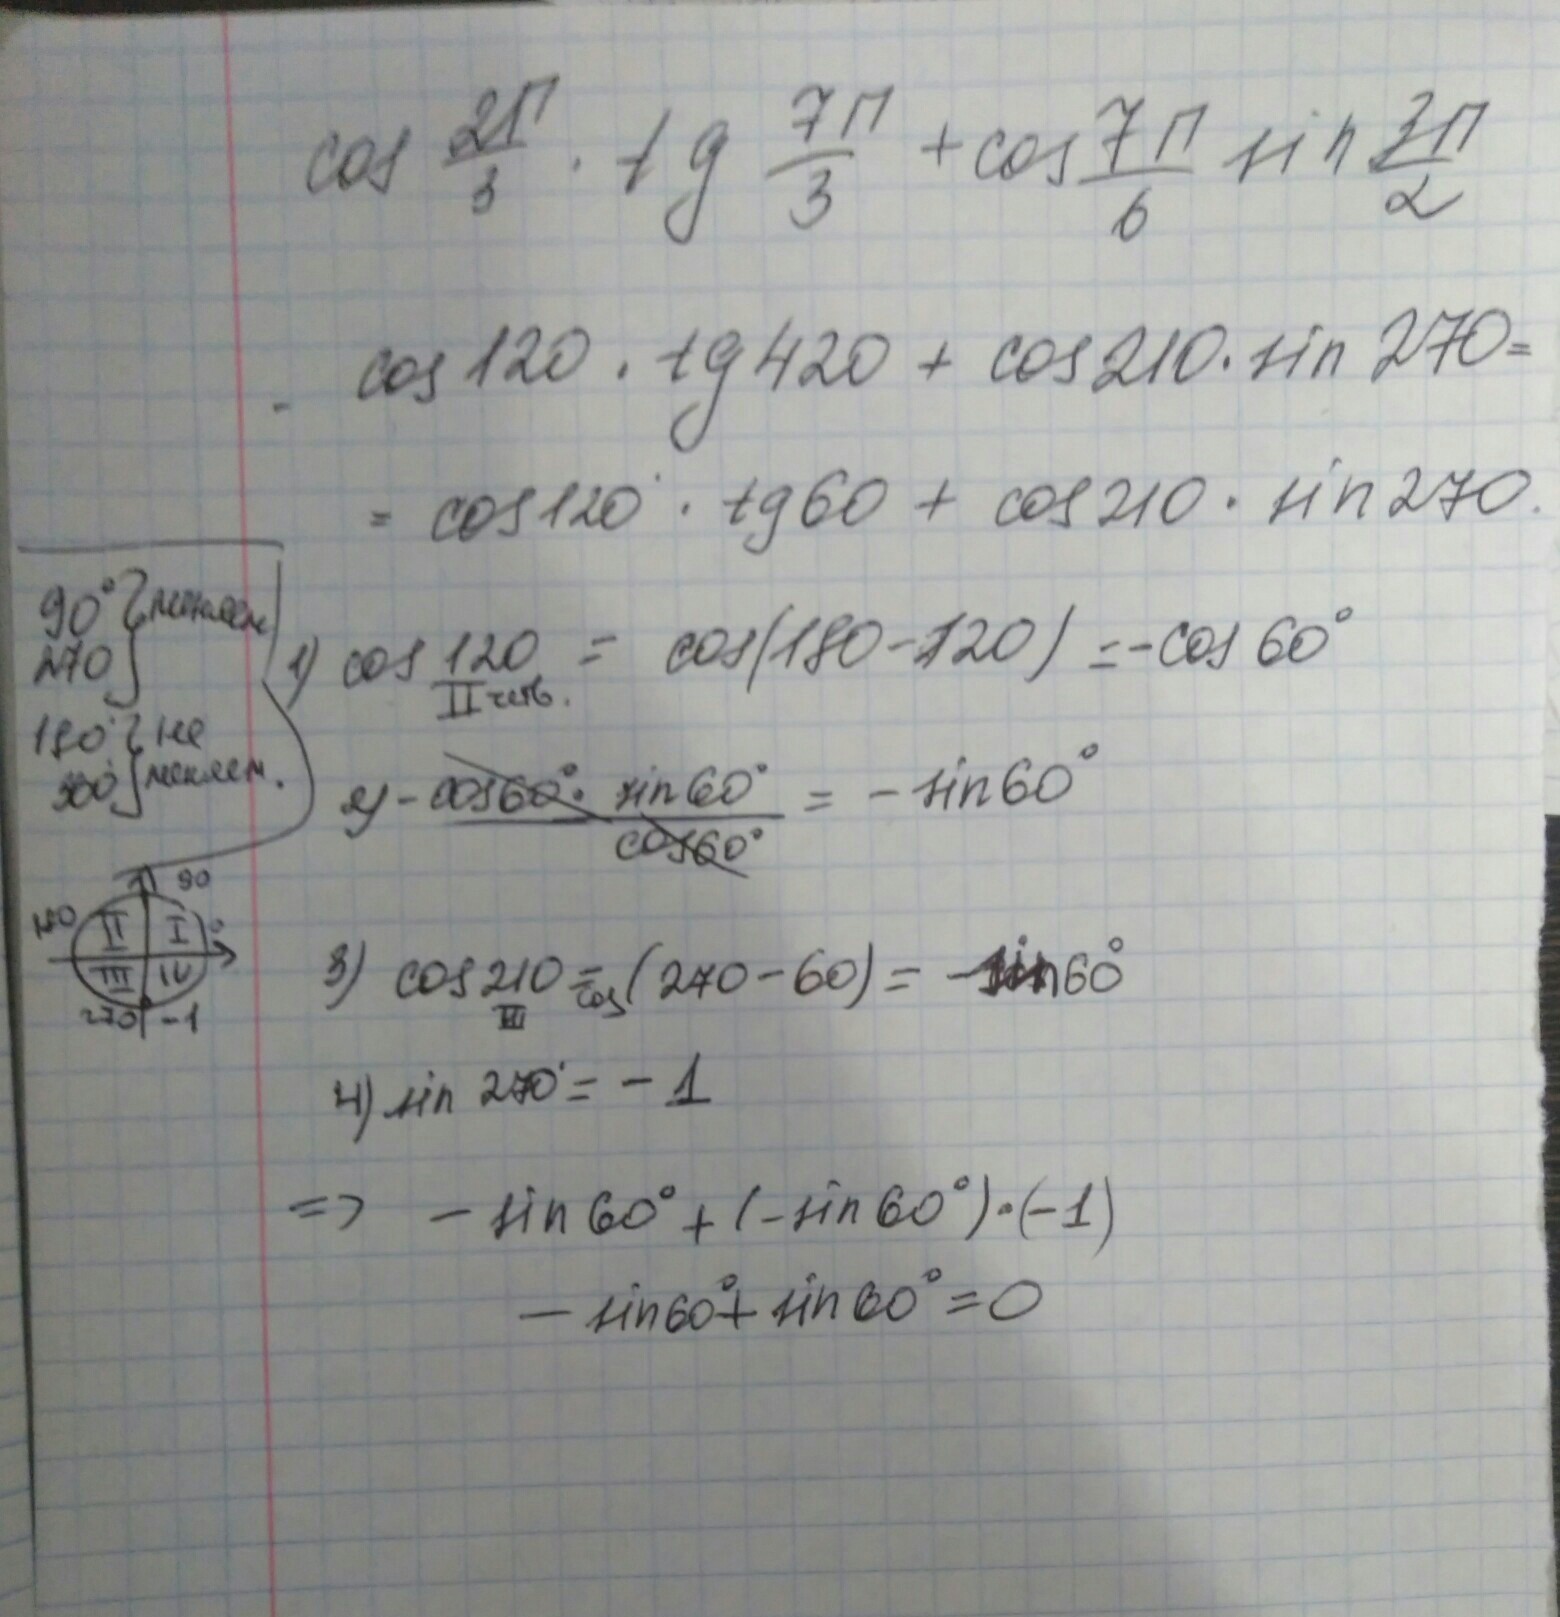 cos 2π/3 · tg 7π/3 + cos 7π/6 sin 3π/2
cos 120 · tg 420 + cos 210 · sin 270 =
= cos 120° · tg 60 + cos 210 · sin 270.
90° } меняем
270
180° } не
360° } меняем.
1) cos 120 = cos(180 - 120) = -cos 60°
II четв.
2) - cos 60° · sin 60° / cos 60° = - sin 60°
90
180 II I 0
III IV
270 -1
3) cos 210 = cos (270 - 60) = - sin 60°
III
4) sin 270° = - 1
=> - sin 60° + (- sin 60°) · (-1)
- sin 60° + sin 60° = 0